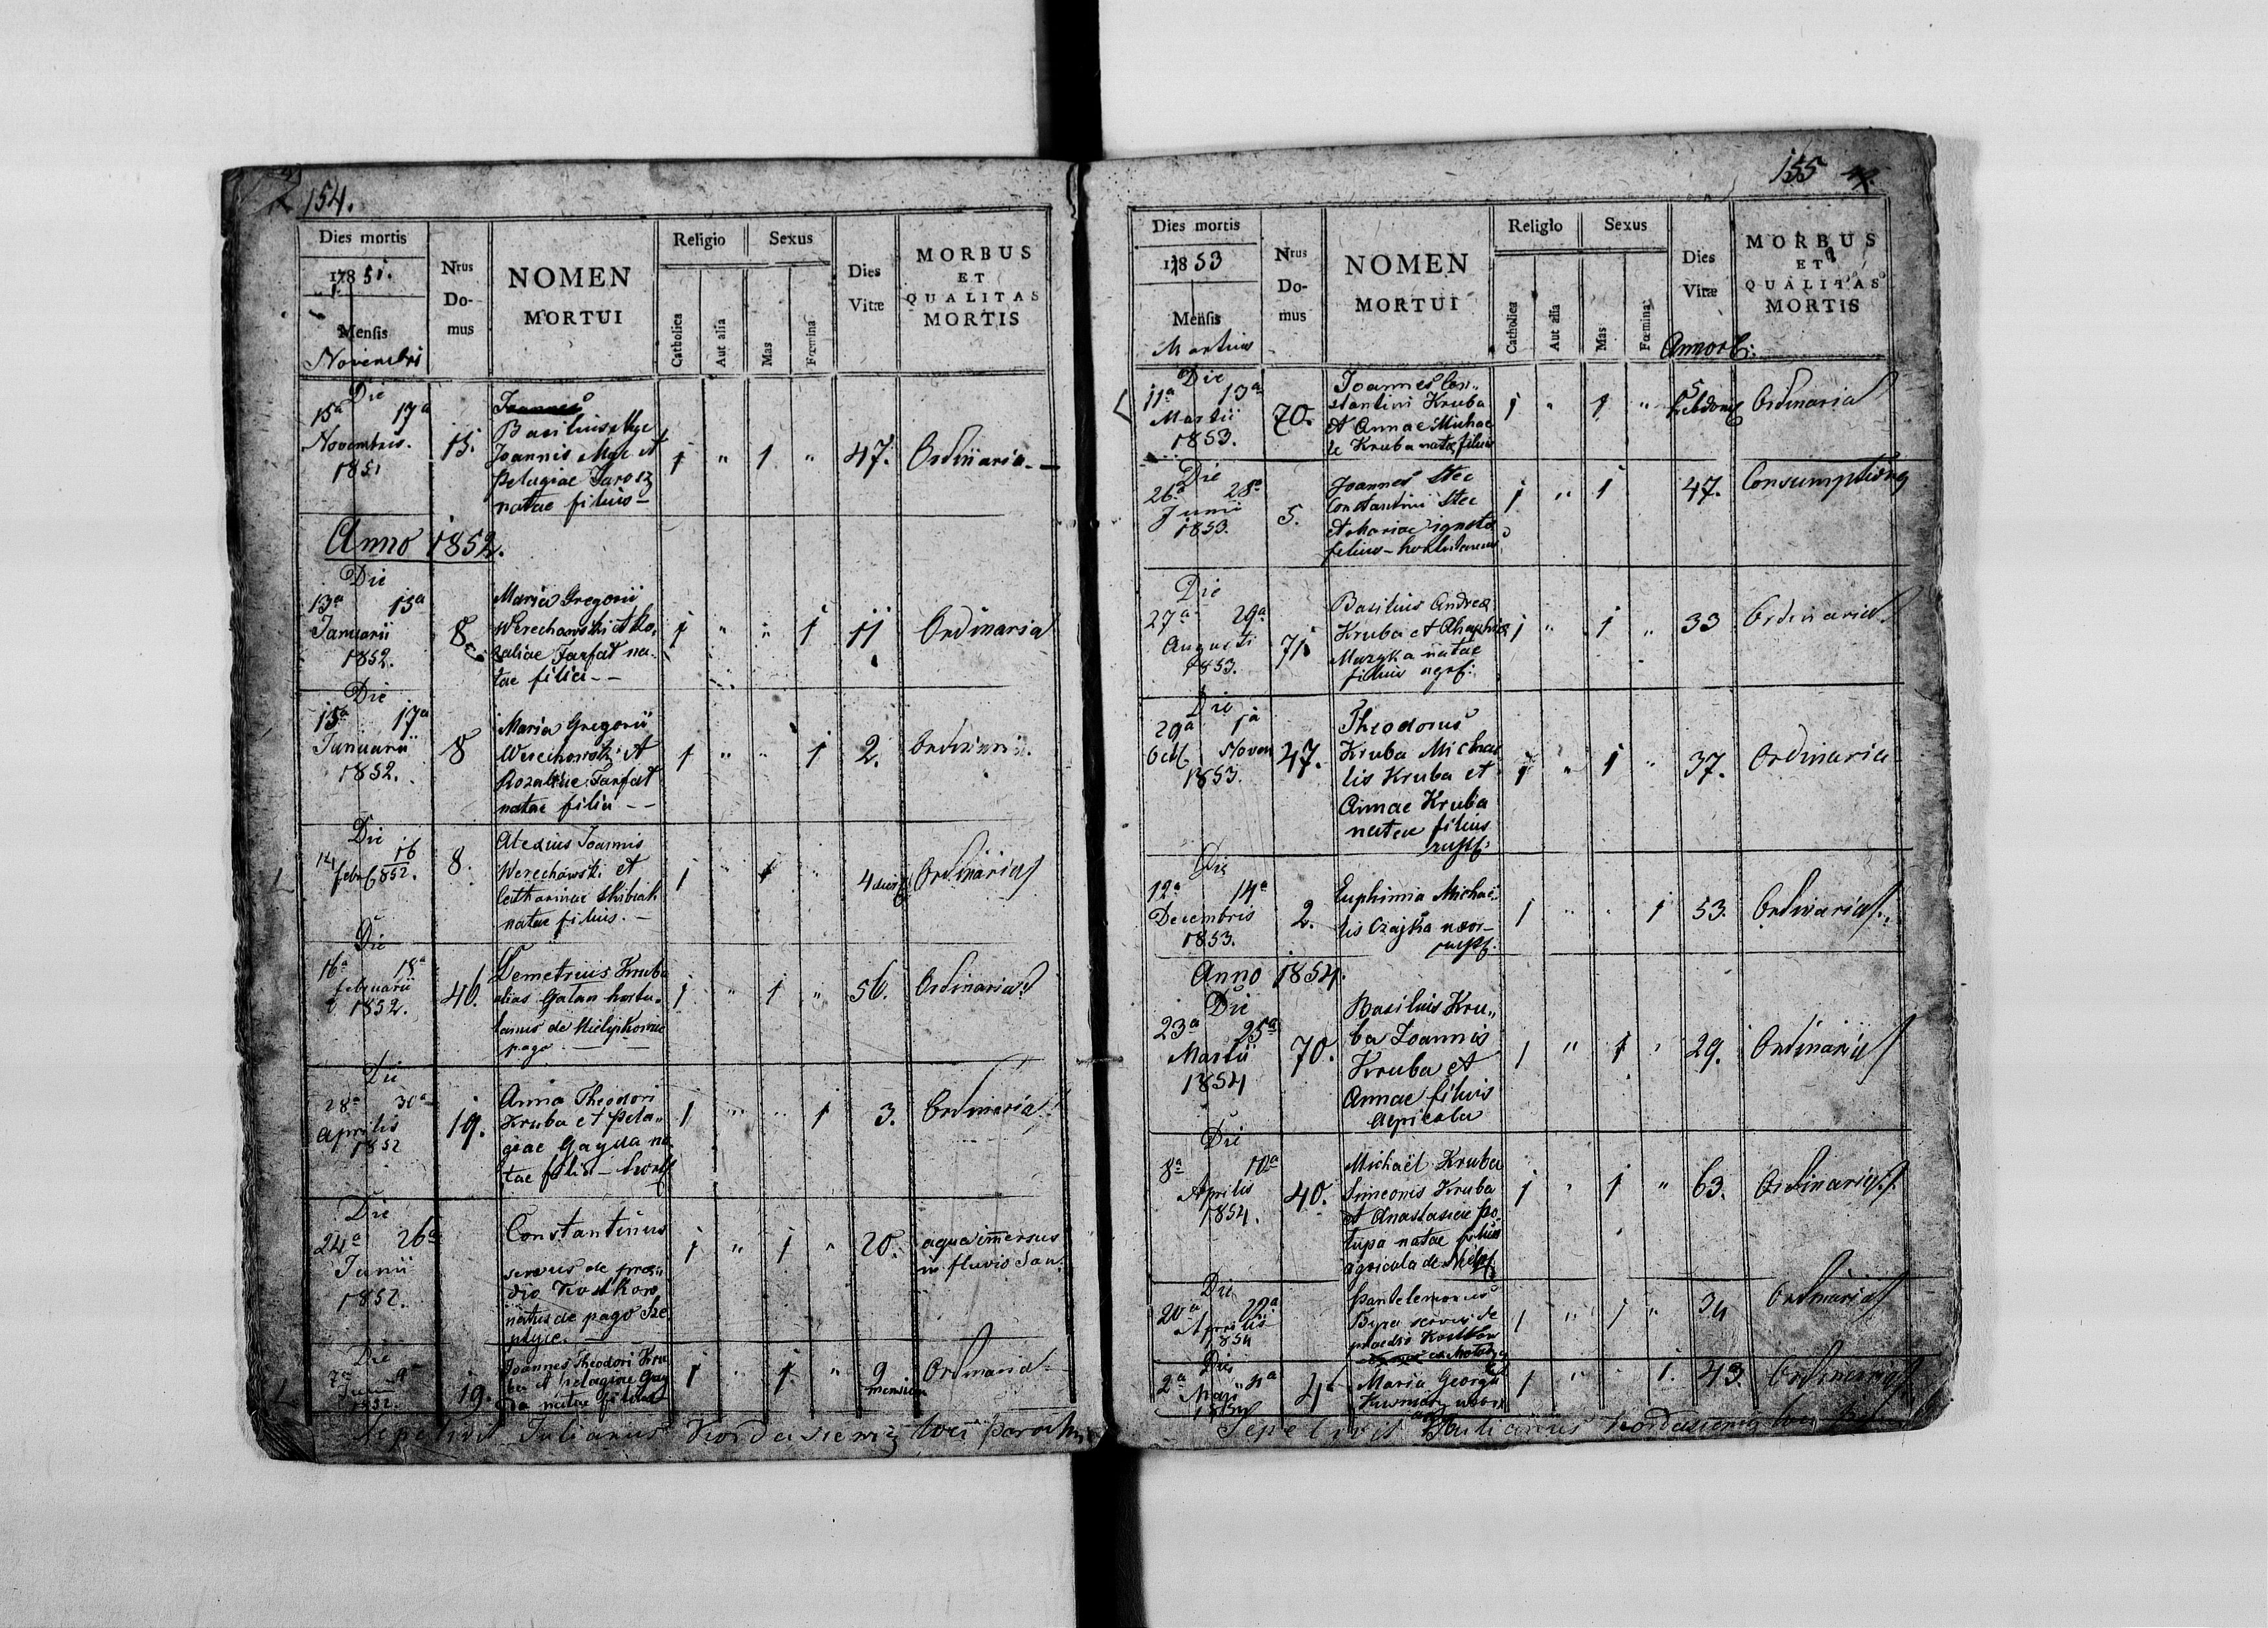 154.
Dies mortis
1851.
Mensis
Novembri
Nrus
Do-
mus
NOMEN
MORTUI
Religio
Catholica
Aut alia
Sexus
Mas
Fœmina
Dies
Vitæ
MORBUS
ET
QUALITAS
MORTIS
Die
15a 17a
Novembris.
1851
15.
Joannes
Basilius Myc
Joannis Myc et
Pelagiae Jarosz
natae filius –
1 " 1 " 47. Ordinaria. –
Anno 1852.
Die
13a 15a
Januarii
1852.
8.
Maria Gregorii
Werechowski et Ro,
zaliae Farfat na-
tae filia – –
1 " " 1 11 Ordinaria
Die
15a 17a
Januarii
1852.
8
Maria Gregorii
Werechowski et
Rozaliae Farfat
natae filia – –
1 " " 1 2. Ordinaria.
Die
14 16
Febr 1852.
8.
Alexius Joannis
Werechowski et
Catharinae
natae filius. –
1 " 1 " 4 Ordinaria
Die
16a 18a
Februarii
1852.
46.
Demetrius Kruba
alias Gatan hortu-
lanus de
pago
1 " 1 " 56. Ordinaria
Die
28a 30a
Aprilis
1852
19.
Anna Theodori
Kruba et Pela-
giae na
tae filia –
1 " " 1 3. Ordinaria
Die
24a 26a
Junii
1852.
Constantinus
servus de præ,,
dio Kostkow
natus de pago
1 " 1 " 20. aqua immersus
in fluvio San.
Die
7a 9a
1852.
19.
Joannes Theodori Kru
ba et Pelagiae
natae filius
1 1. " 9
mensium
Ordinaria –
Sepelivit Julianus Kordasiewicz loci Paroch
155
Dies mortis
1853
Mensis
Martius
Nrus
Do-
mus
NOMEN
MORTUI
Religio
Catholica
Aut alia
Sexus
Mas
Fœmina
Dies
Vitæ
MORBUS
ET
QUALITAS
MORTIS
Die
11a 13a
Martii
1853.
70.
Joannes Con,,
stantini Kruba
et Annae Michae
le Kruba natae filius
1 " 1 " 5
Ordinaria
Die
26a 28a
Junii
1853.
5.
Joannes Stec
Constantini Stec
et Mariae ignota
filius – hortulanus
1 " 1 47. Consumption
Die
27a 29a
Augusti
1853.
71.
Basilius Andreæ
Kruba et
Mazyka natae
filius
1 " 1 " 33 Ordinaria
Die
29a 1a
Novem
1853.
47.
Theodorus
Kruba Michae
lis Kruba et
Annae Kruba
natae filius
1 " 1 " 37. Ordinaria
Die
12a 14a
Decembris
1853.
2.
Euphimia Michaë-
lis Czajka uxor –
1 " " 1 53. Ordinaria.
Anno 1854.
Die
23a 25a
Martii
1854
70.
Basilius Kru,,
ba Joannis
Kruba et
Annae filius
Agricola
1 " 1 " 29. Ordinaria
Die
8a 10a
Aprilis
1854.
40.
Michaël Kruba
Simeonis Kruba
et Anastasiae Po-
tupa natae filius
agricola de
1 " 1 " 63. Ordinaria.
Die
20a 22a
Aprilis
1854
Pantelemonus
servus de
praedio Kostkow
1 " 1 " 34 Ordinaria
Die
2a 4a
Maii
1854
4.
Maria Georgii
uxor
1 " 1. 43. Ordinaria
Sepelivit Julianus Kordasiewicz loci